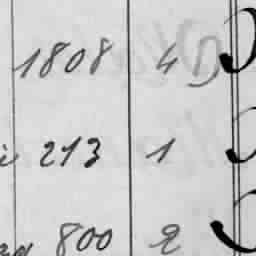 1808 4
213 1
800 2